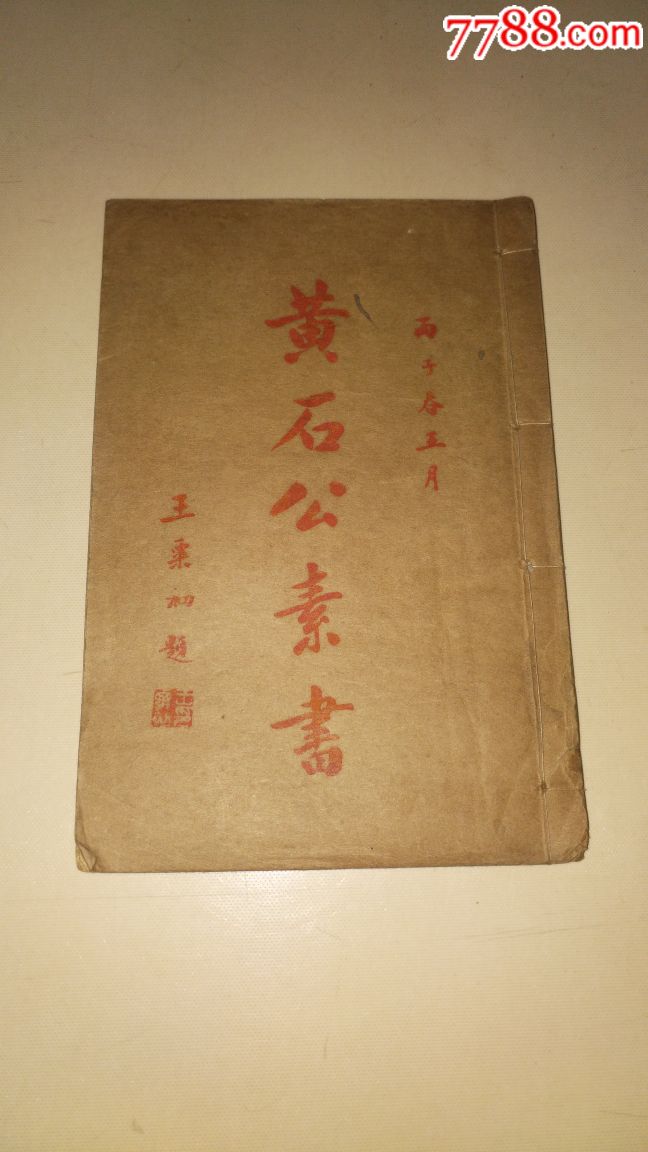 7788.com
丙子春王月
黄石公素書
王粟初題